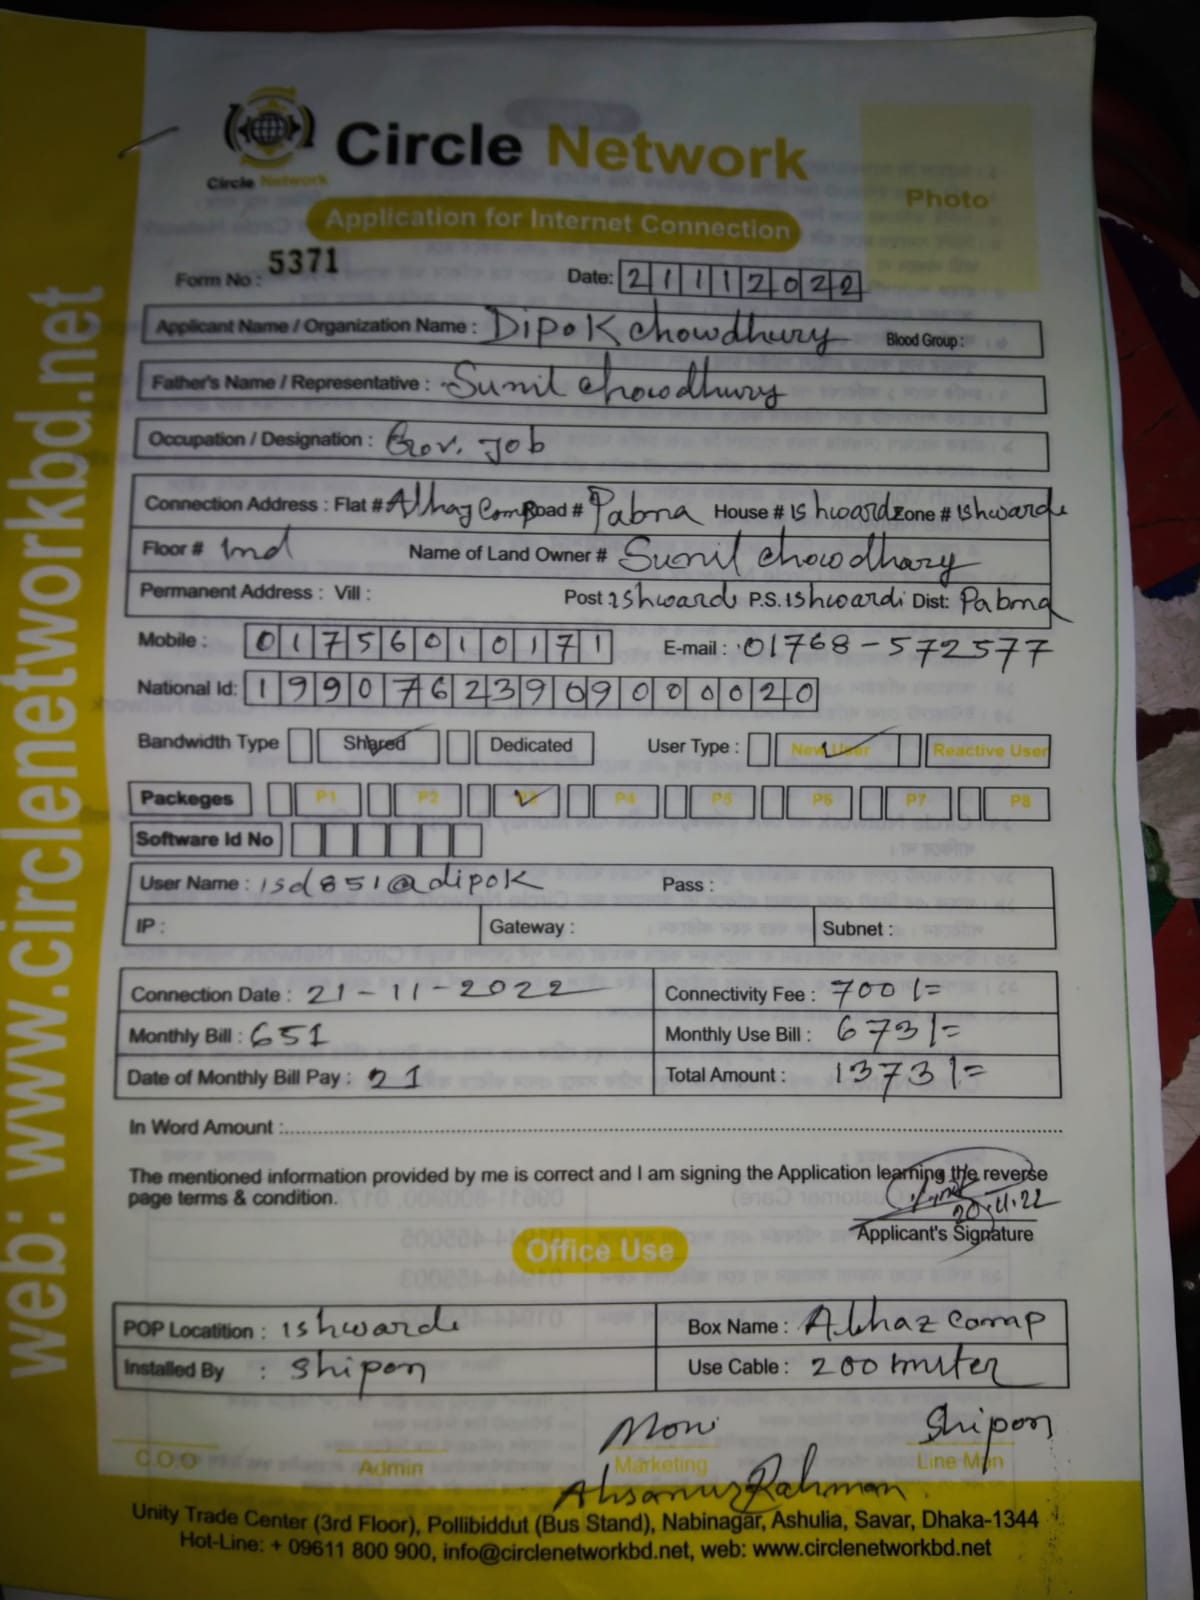 web: www.circlenetworkbd.net
Circle Network
Circle Network
Photo
Application for Internet Connection
Form No : 5371 Date: 21112022
Applicant Name / Organization Name : Dipok chowdhury Blood Group :
Father's Name / Representative : Sunil chowdhury
Occupation / Designation : Gov. Job
Connection Address : Flat # Alhaz Comp Road # Pabna House # Ishwardi Zone # Ishwardi
Floor # Ind Name of Land Owner # Sunil chowdhary
Permanent Address : Vill : Post : Ishwardi P.S. Ishwardi Dist: Pabna
Mobile : 01756010171 E-mail : 01768-572577
National Id: 19907623909000020
Bandwidth Type Shared Dedicated User Type : New User Reactive User
Packeges P1 P2 P3 P4 P5 P6 P7 P8
Software Id No
User Name : isd851@dipok Pass :
IP : Gateway : Subnet :
Connection Date : 21-11-2022 Connectivity Fee : 700/=
Monthly Bill : 651 Monthly Use Bill : 673/=
Date of Monthly Bill Pay : 21 Total Amount : 1373/=
In Word Amount :
The mentioned information provided by me is correct and I am signing the Application learning the reverse
page terms & condition.
20.11.22
Applicant's Signature
Office Use
POP Locatition : Ishwardi Box Name : Alhaz comp
Installed By : Shipon Use Cable : 200 miter
Moni Shipon
C.O.O Admin Marketing Line Man
Ahsanur Rahman
Unity Trade Center (3rd Floor), Pollibiddut (Bus Stand), Nabinagar, Ashulia, Savar, Dhaka-1344
Hot-Line: + 09611 800 900, info@circlenetworkbd.net, web: www.circlenetworkbd.net